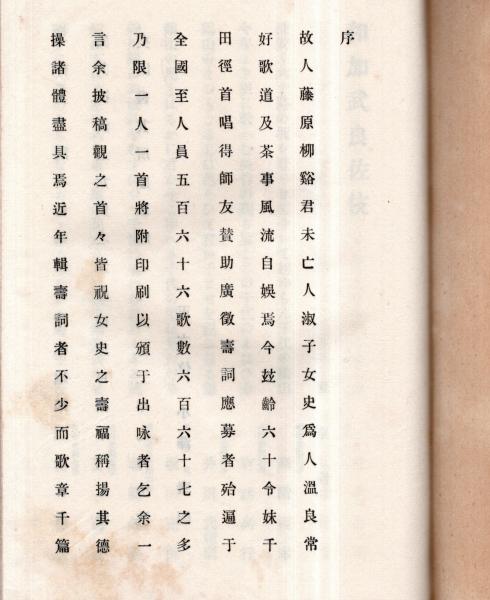 序
故人藤原柳谿君未亡人淑子女史爲人溫良常
好歌道及茶事風流自娛焉今玆齡六十令妹千
田徑首唱得師友贊助廣徵壽詞應募者殆遍于
全國至人員五百六十六歌數六百六十七之多
乃限一人一首將附印刷以頒于出咏者乞余一
言余披稿觀之首々皆祝女史之壽福稱揚其德
操諸體盡具焉近年輯壽詞者不少而歌章千篇